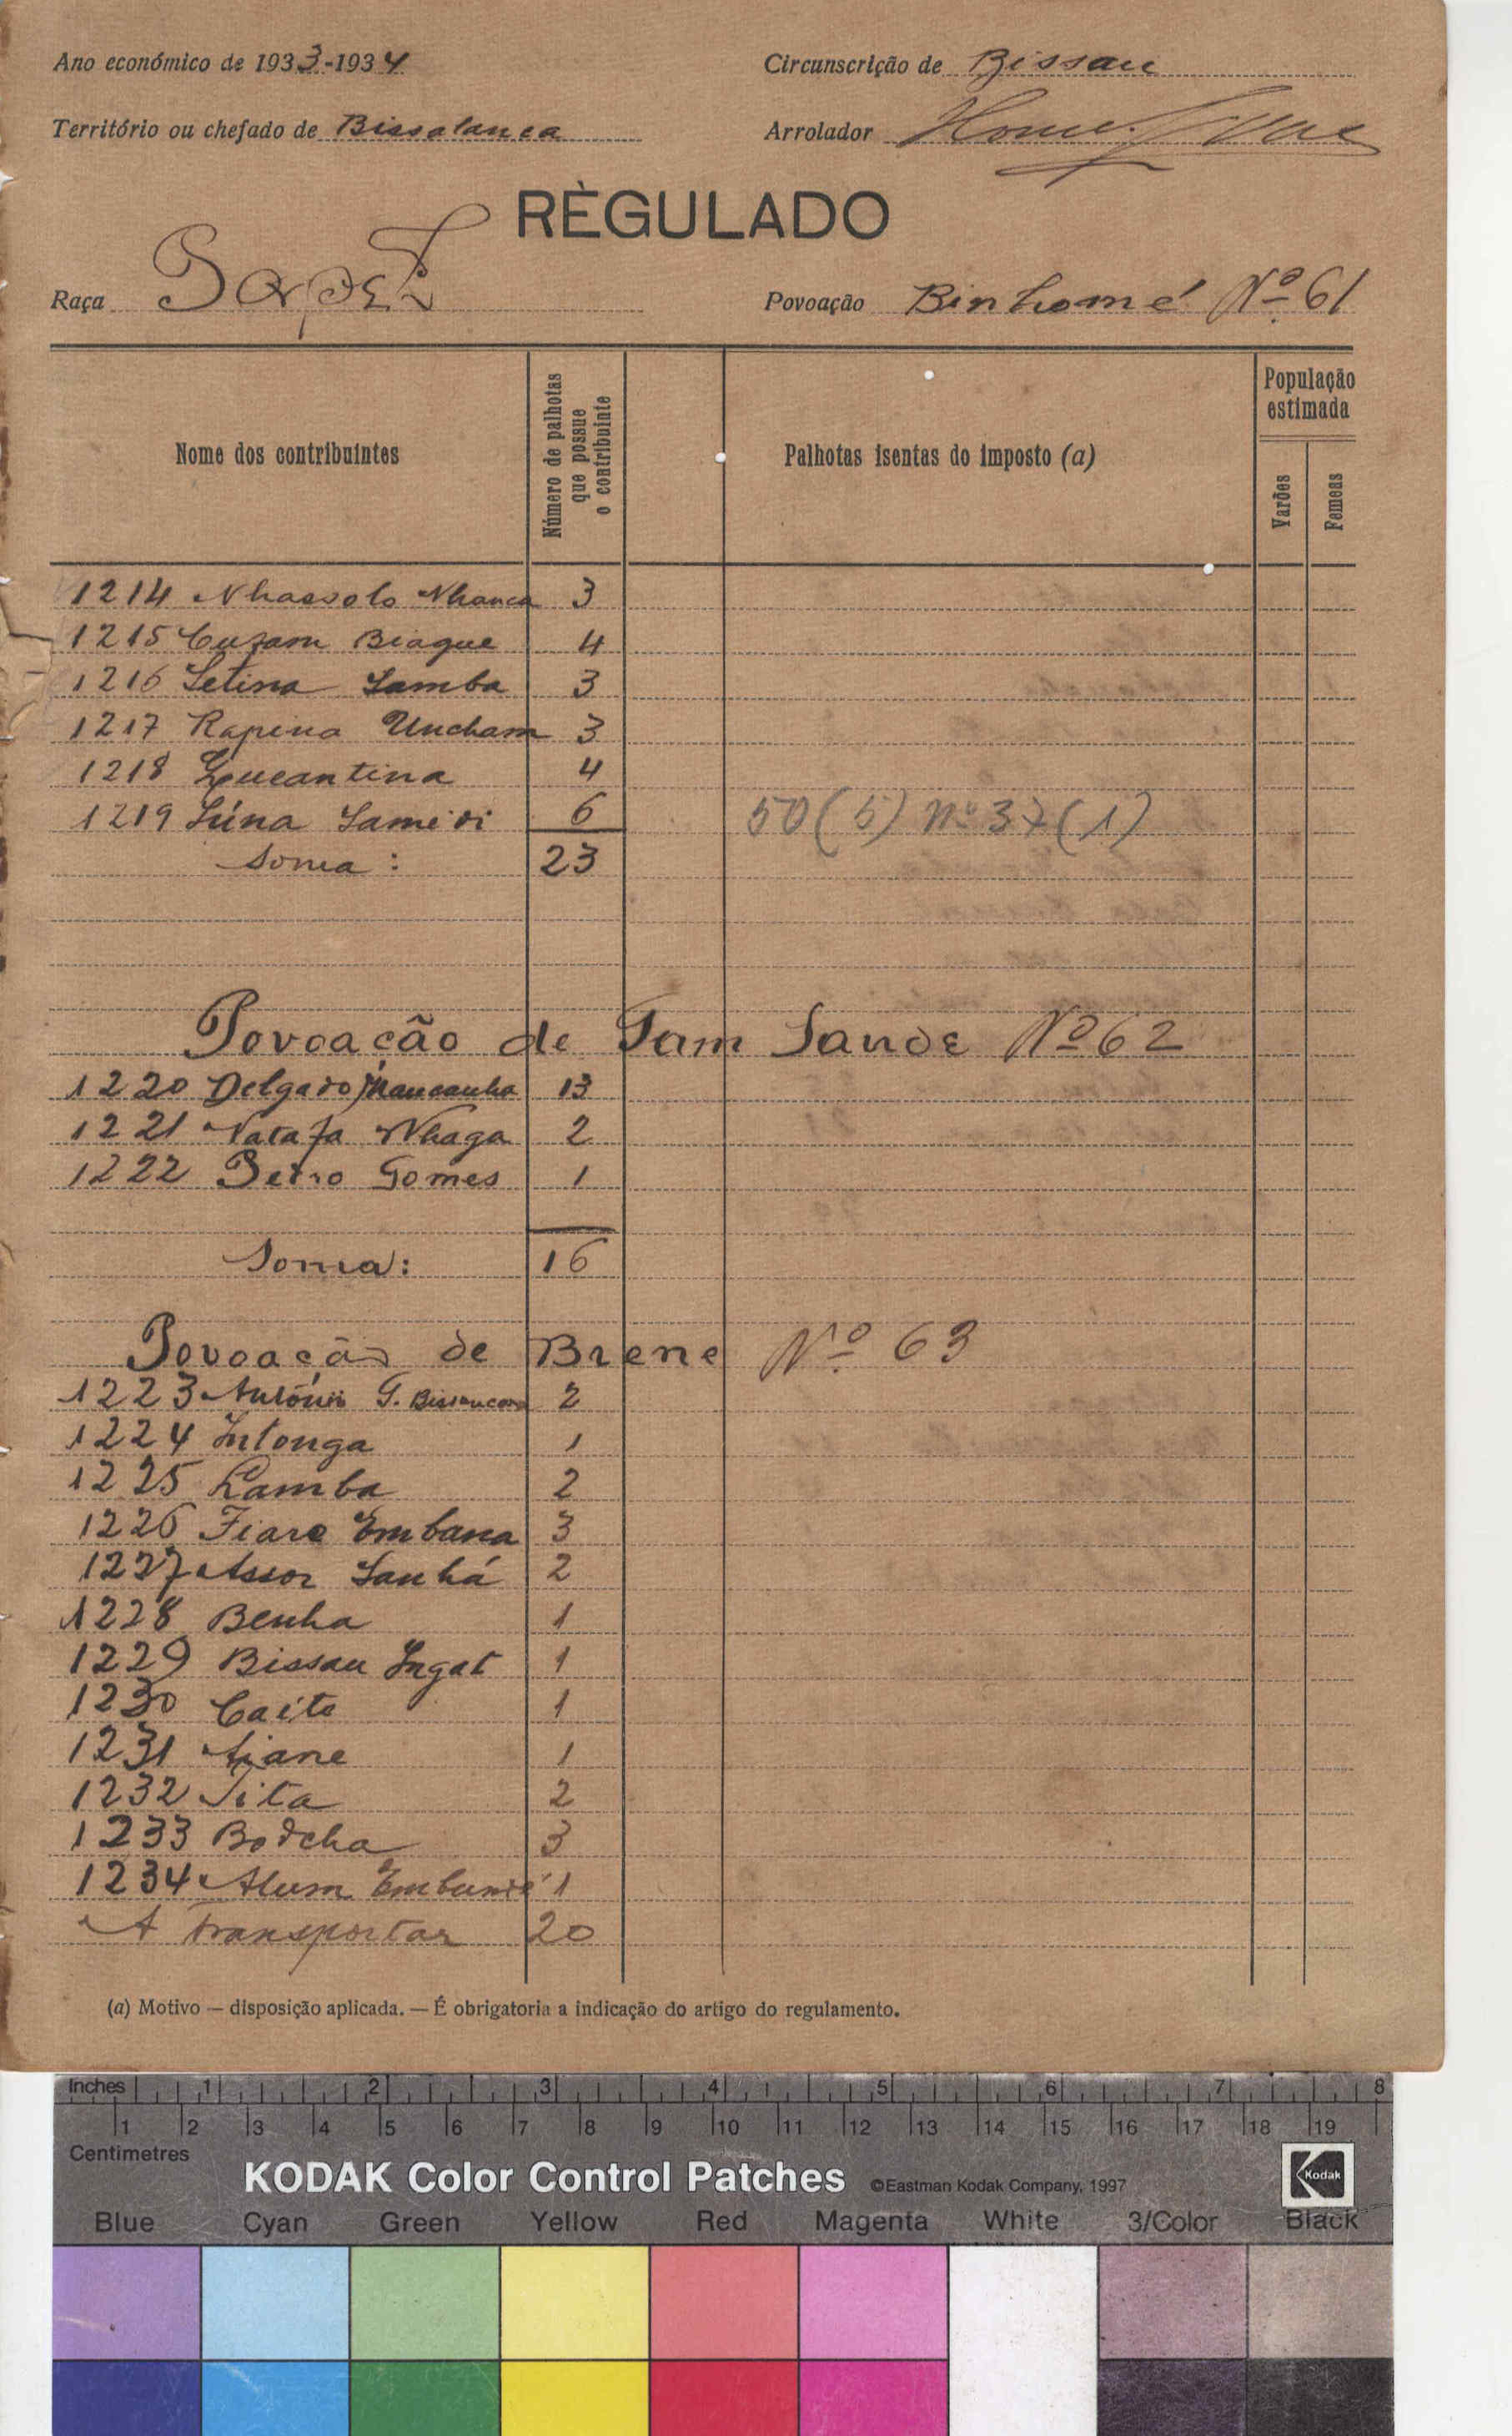 Ano económico de 1933-1934
Circunscrição de Bissau
Território ou chefado de Bissalanca
Arrolador
RÈGULADO
Raça Papel
Povoação Binhomé Nº 61
Nome dos contribuintes
Número de palhotas que possue o contribuinte
Palhotas isentas do imposto (a)
População estimada
Varões
Femeas
1214 Nhassolo Nhanca 3
1215 Cuzam Biague 4
1216 Setina Samba 3
1217 Rapina Uncham 3
1218 Lucantina 4
1219 Súna Samedi 6 50 (5) Nº 37 (1)
Soma: 23
Povoação de Tam Sande Nº 62
1220 Delgado Mancanha 13
1221 Natafa Nhaga 2
1222 Pedro Gomes 1
Soma: 16
Povoação de Brene Nº 63
1223 António G. 2
1224 Intonga 1
1225 Lamba 2
1226 Fiare Embana 3
1227 Assor Sanhá 2
1228 Benha 1
1229 Bissau Ingat 1
1230 Caite 1
1231 Aiane 1
1232 Sita 2
1233 Bodcha 3
1234 Alum 1
A transportar 20
(a) Motivo — disposição aplicada. — É obrigatoria a indicação do artigo do regulamento.
Inches 1 2 3 4 5 6 7 8
1 2 3 4 5 6 7 8 9 10 11 12 13 14 15 16 17 18 19
Centimetres
KODAK Color Control Patches ©Eastman Kodak Company, 1997 Kodak
Blue Cyan Green Yellow Red Magenta White 3/Color Black